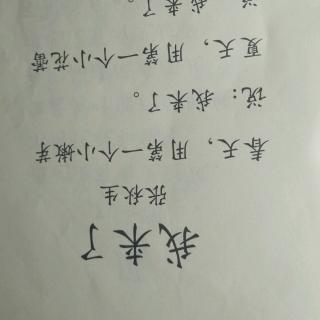 我来了
张秋生
春天，用第一个小嫩芽
说：我来了。
夏天，用第一个小花蕾
说：我来了。